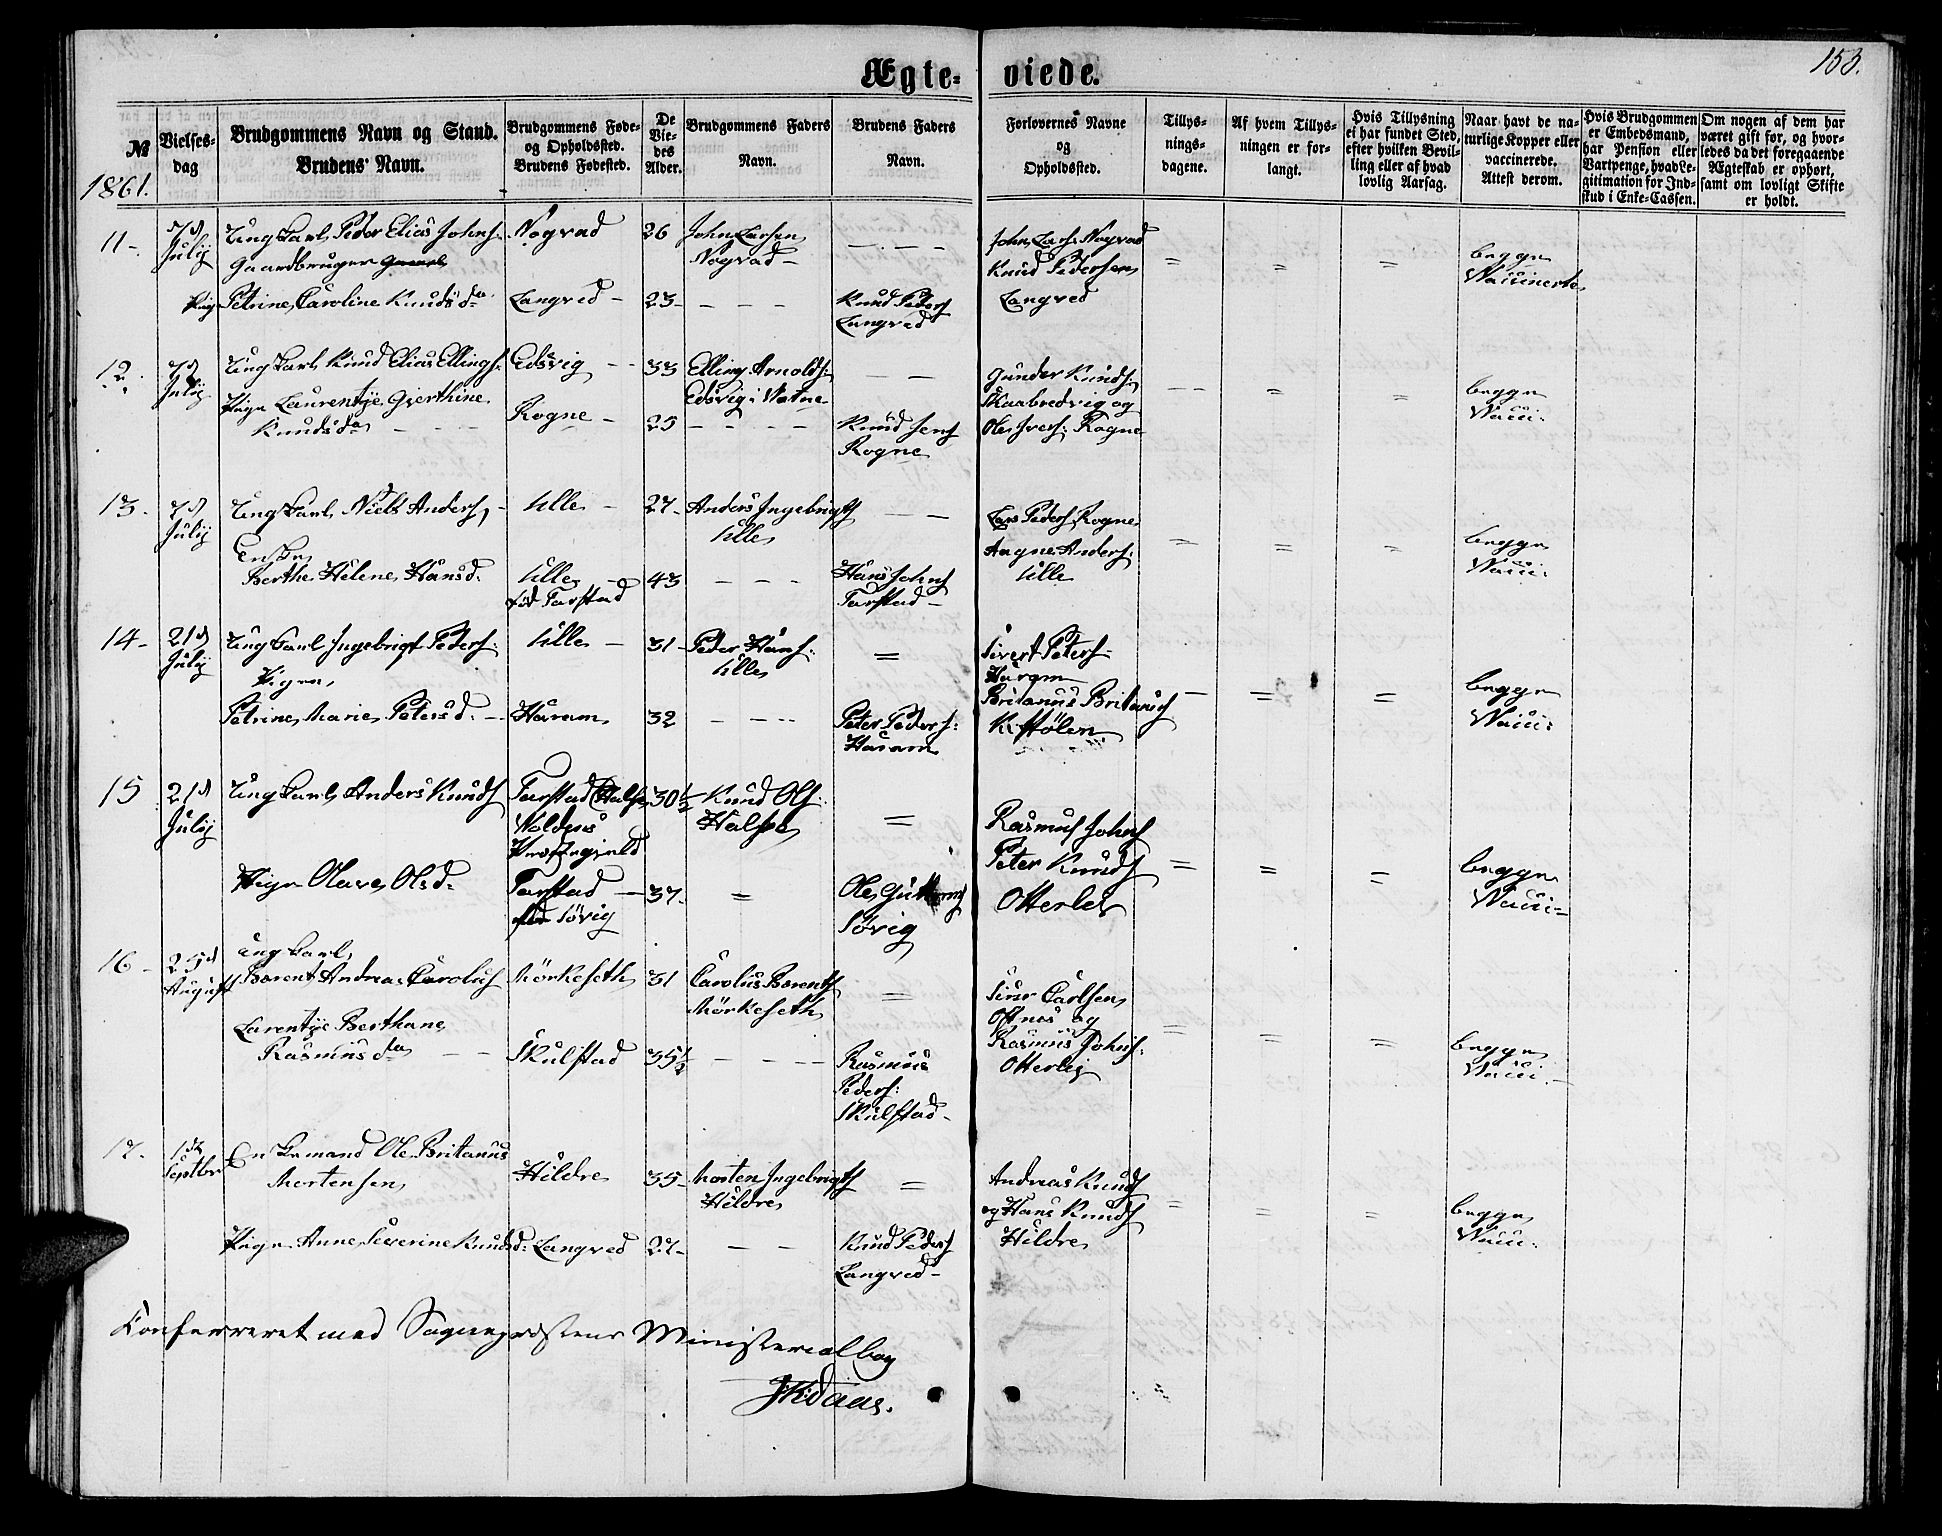 153.
Ægte-viede.
№
Vielses-dag
Brudgommens Navn og Stand.
Brudens Navn.
Brudgommens Føde-
og Opholdssted.
Brudens Fødested.
De
Vie-
des
Alder.
Brudgommens Faders
Navn.
Brudens Faders
Navn.
Forlovernes Navne
og
Opholdssted.
Tillys-
nings-
dagene.
Af hvem Tillys-
ningen er for-
langt.
Hvis Tillysning
ei har fundet Sted,
efter hvilken Bevil-
ling eller af hvad
lovlig Aarsag.
Naar havt de na-
turlige Kopper eller
vaccinerede.
Attest derom.
Hvis Brudgommen
er Embedsmand,
har Pension eller
Vartpenge, hvad Le-
gitimation for Ind-
skud i Enke-Cassen.
Om nogen af dem har
været gift før, og hvor-
ledes da det foregaaende
Ægteskab er ophørt,
samt om lovligt Skifte
er holdt.
1861.
11-
7d
Julij
Ungkarl Peder Elias Johns:
Gaardbruger
Nogvad
26
John Larsen
Nogvad-
John Lars: Nogvad
Knud Pedersen
Langved
begge
Vaccinerte
Pige Petrine Caroline Knudsda
Langved -
23-
Knud Peders
Langved
12.
7d
Julij
Ungkarl Knud Elias Ellings:
Eidsvig --
33
Elling Arnolds:
Eidsvig i Vatne
Gunder Knuds:
Skaabredvig og
Ole Ivers: Rogne
begge
Vacci:
Pige Laurentje Gjerthine
Knudsda
Rogne -
25
Knud Jens
Rogne
13.
7d
Julij
Ungkarl Niels Anders,
Ulle -
27-
Anders Ingebrigts
Ulle
Lars Peders Rogne
Aagne Anders:
Ulle
begge
Vacci:
Enke
Berthe Helene Hansd.
Ulle -
fød Farstad
43
Hans Johns
Farstad-
14-
21d
Julij
Ungkarl Ingebrigt Peders:
Ulle -
31-
Peder Hans:
Ulle
Sivert Peters-
Haram
Britanus Britanus
Kjstølen
begge
Vacci:
Pigen,
Petrine Marie Petersd. -
Haram
32
Peter Peders:
Haram
15
21d
Julij
Ungkarl Anders Knuds
Farstad
Voldens
Præstegjeld
30½
Knud Ols:
Halse
Rasmus Johns
Peter Knuds
Otterlei
begge
Vacci-
Pige Olave Olsd.
Farstad -
fød Søvig
37-
Ole Guttorms
Søvig
16-
25d
August
Ungkarl
Barent Andreas Carolus
Mörkeseth
31
Carolus Barents
Mörkeseth
Siver Carlsen
Oftnes og
Rasmus Johns:
Otterlej
begge
Vacci.-
Larentje Berthane
Rasmusda
Skulstad
35½
Rasmus
Peders:
Skulstad-
17.
1ste
Septbr
Enkemand Ole Britanus
Mortensen
Hildre
35-
Morten Ingebrigts
Hildre
Andreas Knuds
og Hans Knuds
Hildre
begge
Vacci.
Pige Anne Severine Knudsd:
Langved
27-
Knud Peders
Langved-
Konfereret med Sognepræstens Ministerialbog
JKDaae.